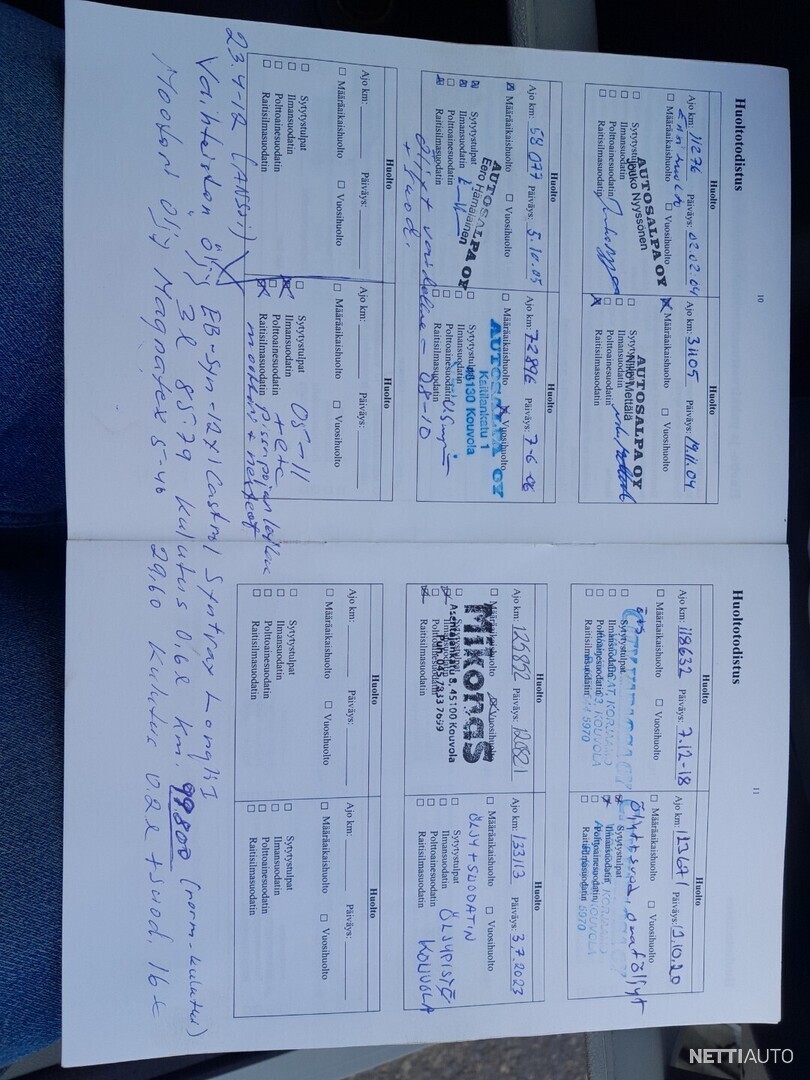 Huoltotodistus
10
Huolto
Ajo km: 11276 Päiväys: 02.02.04
Ensihuolto
☐ Määräaikaishuolto ☐ Vuosihuolto
☐ Sytytystulpat
☐ Ilmansuodatin
☐ Polttoainesuodatin
☐ Raitisilmasuodatin
AUTOSALPA OY
Jouko Nyyssönen
Huolto
Ajo km: 31105 Päiväys: 19.11.04
☒ Määräaikaishuolto ☐ Vuosihuolto
☐ Sytytystulpat
☐ Ilmansuodatin
☐ Polttoainesuodatin
☒ Raitisilmasuodatin
AUTOSALPA OY
Niko Mettälä
Huolto
Ajo km: 58077 Päiväys: 5.10.05
☒ Määräaikaishuolto ☐ Vuosihuolto
☒ Sytytystulpat
☒ Ilmansuodatin
☐ Polttoainesuodatin
☒ Raitisilmasuodatin
AUTOSALPA OY
Eero Hämäläinen
Huolto
Ajo km: 72896 Päiväys: 7-6-06
☐ Määräaikaishuolto ☒ Vuosihuolto
☐ Sytytystulpat
☐ Ilmansuodatin
☐ Polttoainesuodatin
☐ Raitisilmasuodatin
AUTOSALPA OY
Keltilankatu 1
46130 Kouvola
Öljyt vaihdettu - 08-10
+ suod.
Huolto
Ajo km: Päiväys:
☐ Määräaikaishuolto ☐ Vuosihuolto
☐ Sytytystulpat
☐ Ilmansuodatin
☐ Polttoainesuodatin
☐ Raitisilmasuodatin
Huolto
Ajo km: Päiväys:
☐ Määräaikaishuolto ☐ Vuosihuolto
☐ Sytytystulpat
☒ Ilmansuodatin
☐ Polttoainesuodatin
☒ Raitisilmasuodatin
05-11
+ etc
23.4-12 (ANSSI)
Vaihteiston Öljy EB-Syn-12x1 Castrol Syntrax Longlı
3l 85,79 kulutus 0,6l km. 99800 (norm-kulutus)
Moottori Öljy Magnatex 5-40 29,60 kulutus 0.2l + suod. 16€
Huoltotodistus
11
Huolto
Ajo km: 118632 Päiväys: 7.12-18
☐ Määräaikaishuolto ☐ Vuosihuolto
☐ Sytytystulpat
☐ Ilmansuodatin
☐ Polttoainesuodatin
☐ Raitisilmasuodatin
KOUVOLA
5970
Huolto
Ajo km: 123671 Päiväys: 13.10.20
☐ Määräaikaishuolto ☐ Vuosihuolto
☒ Sytytystulpat
☒ Ilmansuodatin
☐ Polttoainesuodatin
☐ Raitisilmasuodatin
KOUVOLA
5970
Huolto
Ajo km: 125852 Päiväys: 120821
☐ Määräaikaishuolto ☒ Vuosihuolto
☐ Sytytystulpat
☒ Ilmansuodatin
☐ Polttoainesuodatin
☒ Raitisilmasuodatin
MiKonGS
Asentajankatu 8, 45100 Kouvola
Puh. 045 7833 7699
Huolto
Ajo km: 133113 Päiväys: 3.7.2023
☐ Määräaikaishuolto ☐ Vuosihuolto
ÖLJY + SUODATIN
☐ Sytytystulpat
☐ Ilmansuodatin
☐ Polttoainesuodatin
☐ Raitisilmasuodatin
ÖLJYPISTE
KOUVOLA
Huolto
Ajo km: Päiväys:
☐ Määräaikaishuolto ☐ Vuosihuolto
☐ Sytytystulpat
☐ Ilmansuodatin
☐ Polttoainesuodatin
☐ Raitisilmasuodatin
Huolto
Ajo km: Päiväys:
☐ Määräaikaishuolto ☐ Vuosihuolto
☐ Sytytystulpat
☐ Ilmansuodatin
☐ Polttoainesuodatin
☐ Raitisilmasuodatin
NETTIAUTO